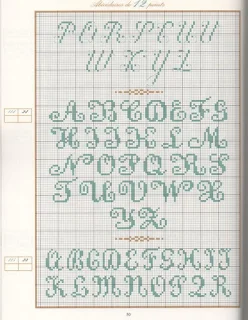 Abécédaires de 12 points
P Q R S T U V
W X Y Z
A B C D E F G
H I J K L M
N O P Q R S
T U V W X
Y Z
A B C D E F G H I J
K L M N O P Q R